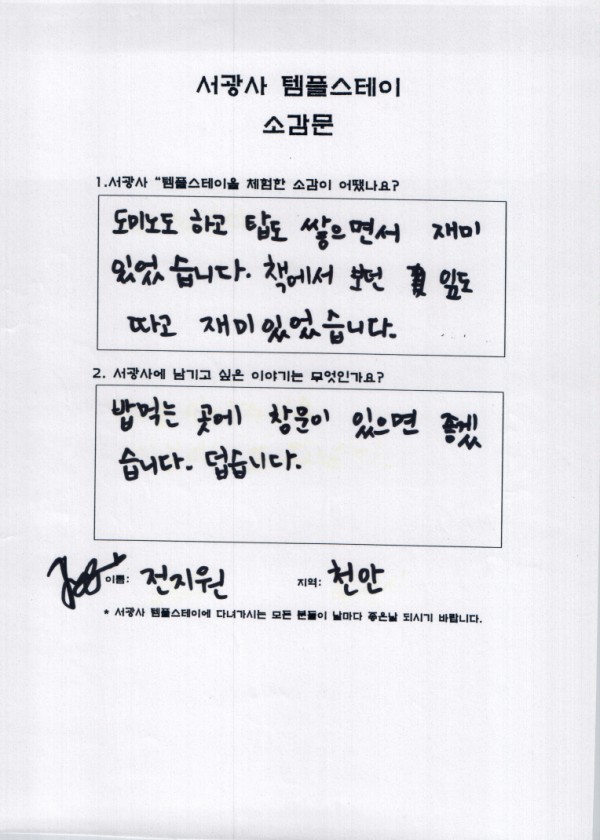 서광사 템플스테이
소감문
1.서광사 "템플스테이을 체험한 소감이 어땠나요?
도미노도 하고 탑도 쌓으면서 재미
있었습니다. 책에서 보던 잎도
따고 재미있었습니다.
2. 서광사에 남기고 싶은 이야기는 무엇인가요?
밥먹는 곳에 창문이 있으면 좋겠
습니다. 덥습니다.
이름: 전지원 지역: 천안
* 서광사 템플스테이에 다녀가시는 모든 분들이 날마다 좋은날 되시기 바랍니다.